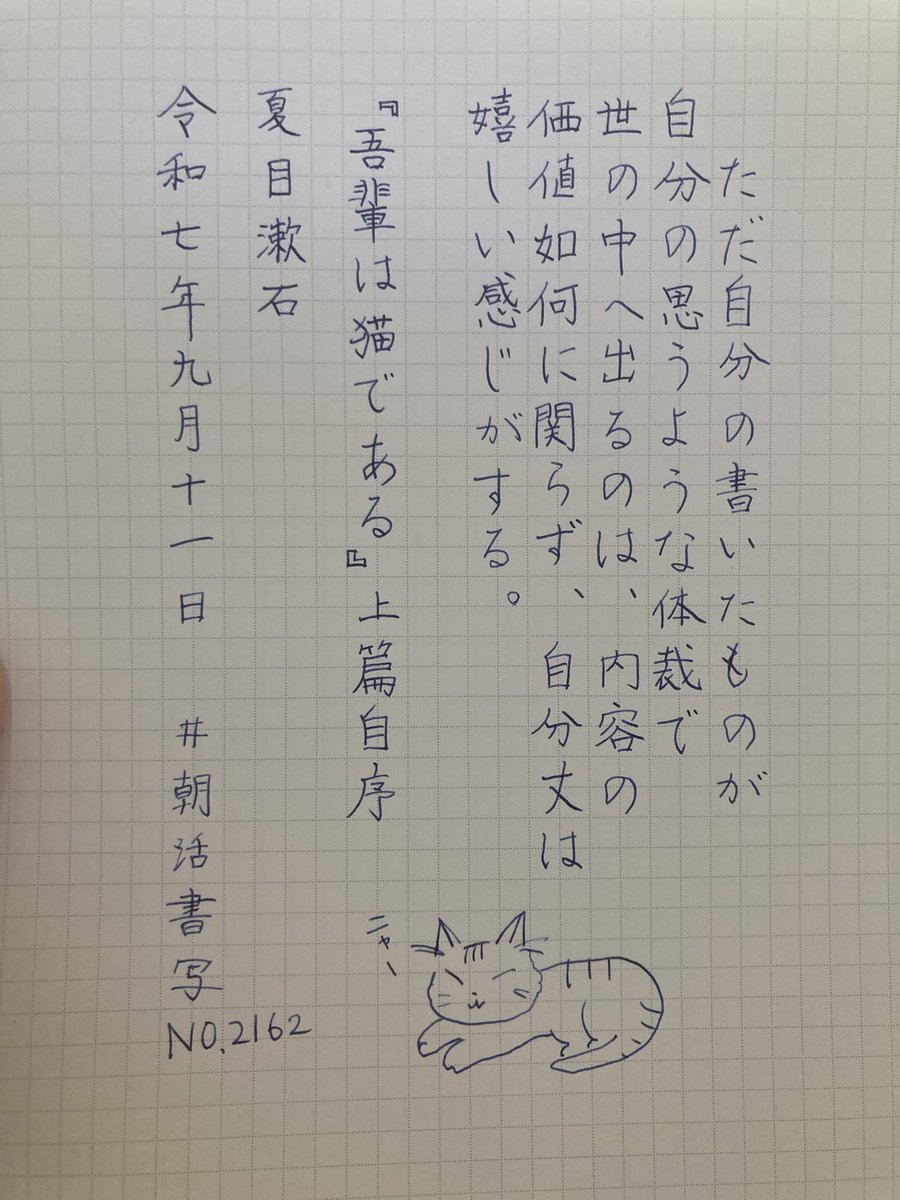 ただ自分の書いたものが
自分の思うような体裁で
世の中へ出るのは、内容の
価値如何に関らず、自分丈は
嬉しい感じがする。
『吾輩は猫である』上篇自序
夏目漱石
令和七年九月十一日 #朝活書写
NO.2162
ニャー